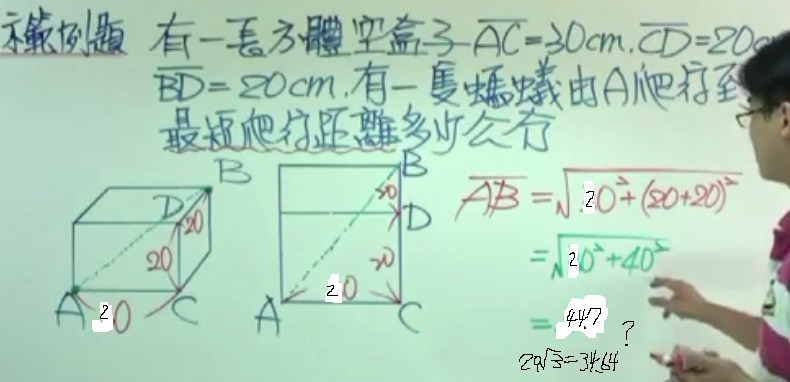 示範例題 有一長方體空盒子 AC=30cm. CD=20cm
BD=20cm. 有一隻螞蟻由A爬行至
最短爬行距離多少公分
B
D
20
20
A
20
C
B
20
D
20
A
20
C
AB = √20²+(20+20)²
= √20²+40²
= 44.7 ?
20√3=34.64